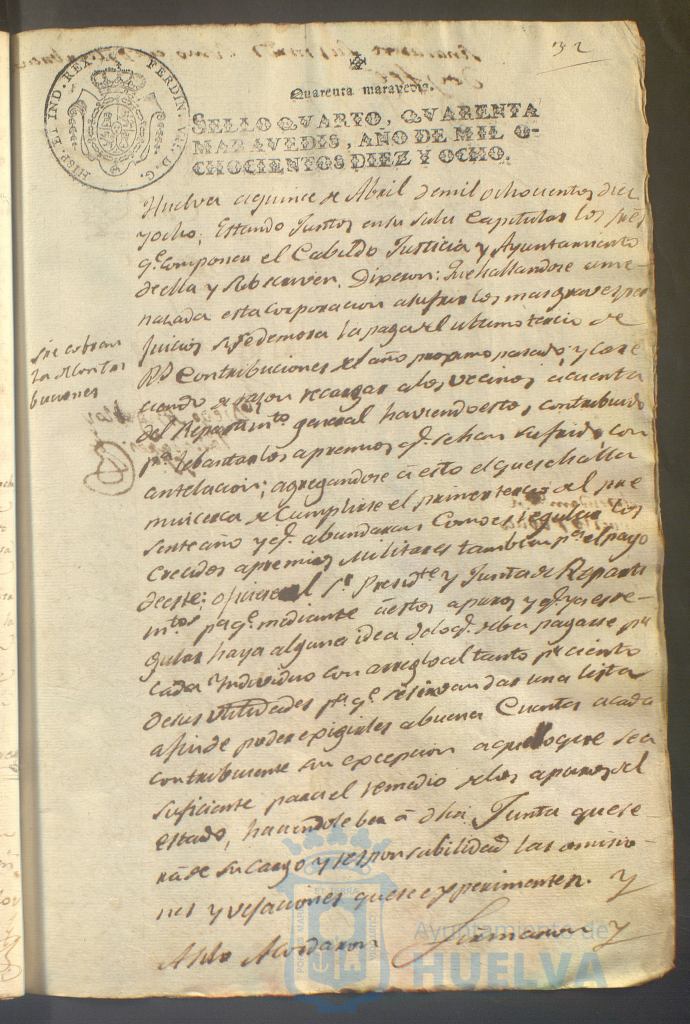 32
HISP. ET IND. REX. FERDIN. VII. D. G.
Quarenta maravedis.
SELLO QVARTO, QVARENTA
MARAVEDIS, AÑO DE MIL O-
CHOCIENTOS DIEZ Y OCHO.
Huelva aquince de Abril demil ochocientos diez
yocho; Estando Juntos ensu Sala Capitular los
qe. componen el Cabildo Justicia y Ayuntamiento
deella y Subscriven, Dixeron: Quehallandose ame
nazada esta corporacion asufrir los mas graves per
juicios sise demora la paga del ultimo tercio de
Rs. Contribuciones del año proximo pasado; y care
ciendo de razon recargar alos vecinos acuenta
del Repartimto. general haviendo estos contribuido
pa. lebantar los apremios qe. sehan sufrido con
antelacion; agregandose á esto el quesehalla
mui cerca de Cumplirse el primer tercio del pre
sente año y qe. abundaran Como es regular los
crecidos apremios Militares tambien pa. el pago
deeste; oficiese al Sr. Presidte. y Junta de Reparti
mtos. pa. qe. mediante á estos apuros y qe. ya es re-
gular haya alguna idea delo qe. deba pagarse pr.
cada Individuo con arreglo al tanto pr. ciento
desus utilidades pa. qe. sesirvan dar una lista
afin de poder exigirles a buena Cuenta acada
contribuyente sin excepcion aquello que sea
suficiente para el remedio delos apuros del
estado, haciendole ver á dha. Junta que se-
rá de su cargo y responsabilidad las omisio-
nes y vejaciones que se experimenten. Y
Asi lo Acordaron firmaron y
sre. cobran
za de contri
buciones
Ayuntamiento de
HUELVA